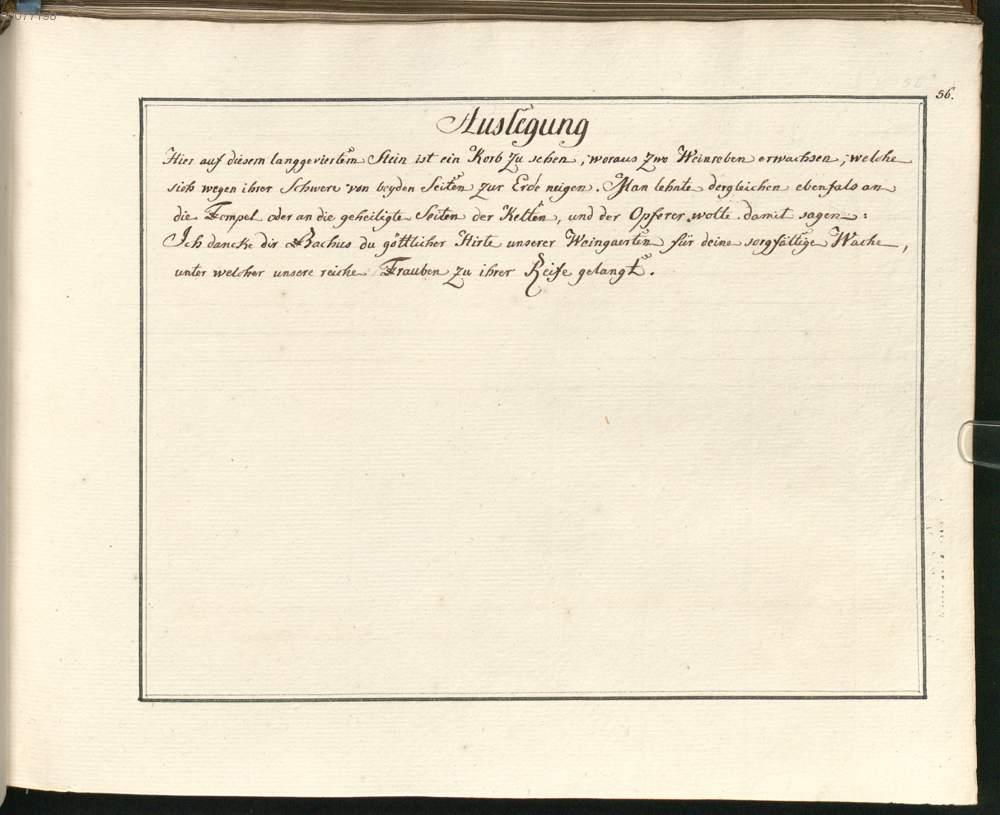 077198
56.
Auslegung
Hier auf diesem langgeviertem Stein ist ein Korb zu sehen, woraus zwo Weinreben erwachsen, welche
sich wegen ihrer Schwere von beyden Seiten zur Erde neigen. Man lehnte dergleichen ebenfals an
die Tempel oder an die geheiligte Seiten der Kelten, und der Opferer wolte damit sagen:
Ich dancke dir Bachus du göttlicher Hirte unserer Weingaerten für deine sorgfältige Wache,
unter welcher unsere reiche Trauben zu ihrer Reife gelangt.